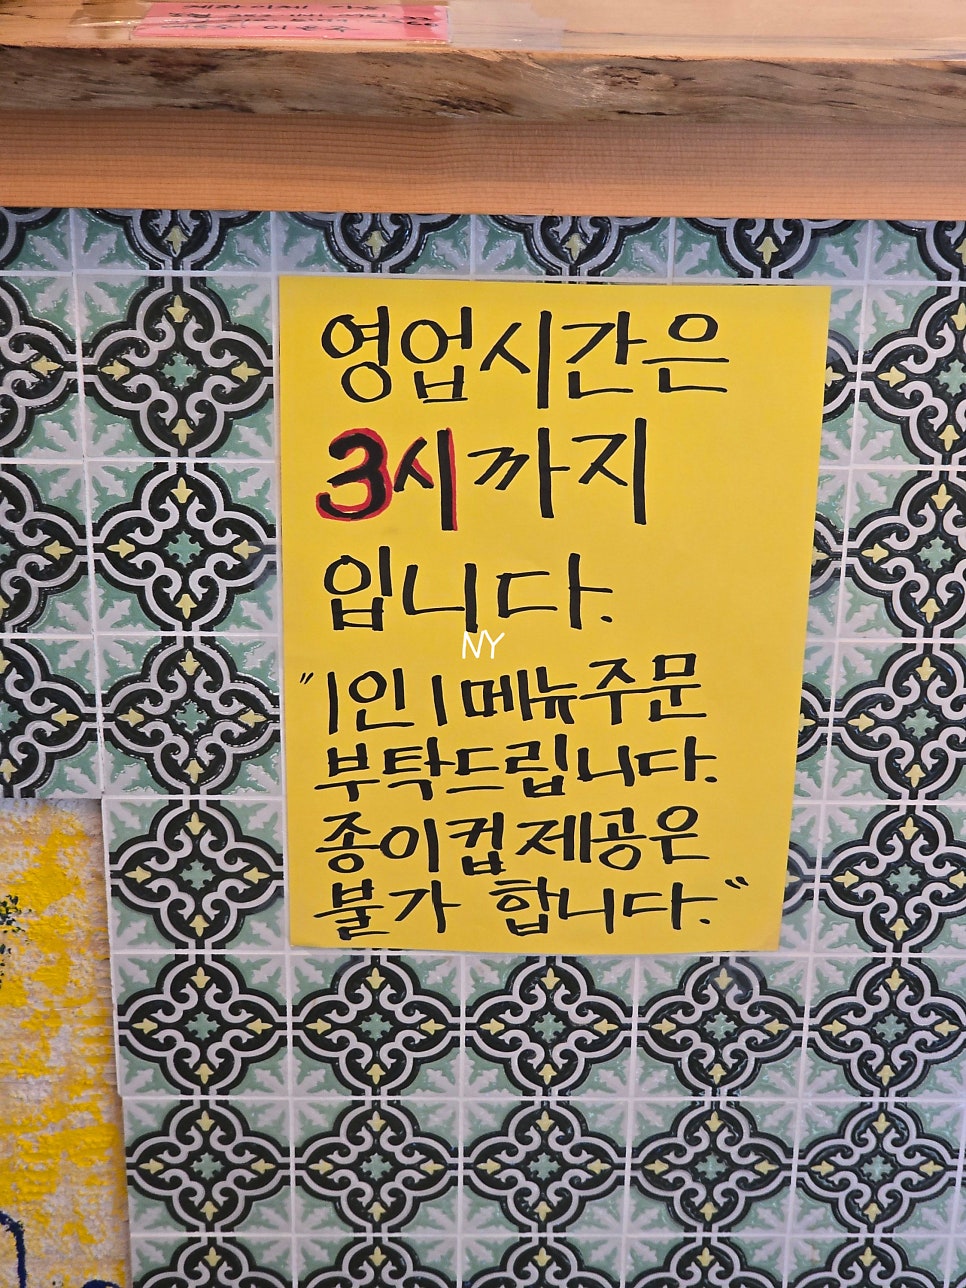 영업시간은
3시까지
입니다.
NY
"1인 1메뉴주문
부탁드립니다.
종이컵 제공은
불가 합니다."